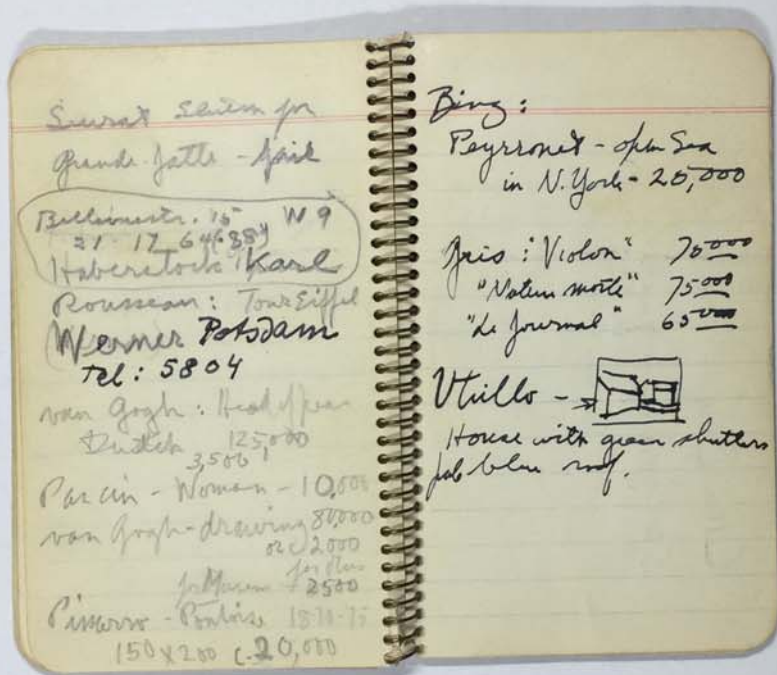 Seurat
Grande Jatte -
Bellevuestr. 15 W 9
21 17 64
Haberstock Karl
Rousseau: Tour Eiffel
Werner Potsdam
Tel: 5804
van Gogh: Head of
Dutch 125,000
3,500
Pascin - Woman - 10,000
van Gogh - drawing 80,000
or 2000
for Museum 2500
Pissarro - Pontoise 1870-75
150 x 200 c. 20,000
Bing:
Peyrronet - open Sea
in N. York - 25,000
Gris: "Violon" 70000
"Nature morte" 75000
"Le Journal" 65000
Utrillo -
House with green shutters
blue roof.